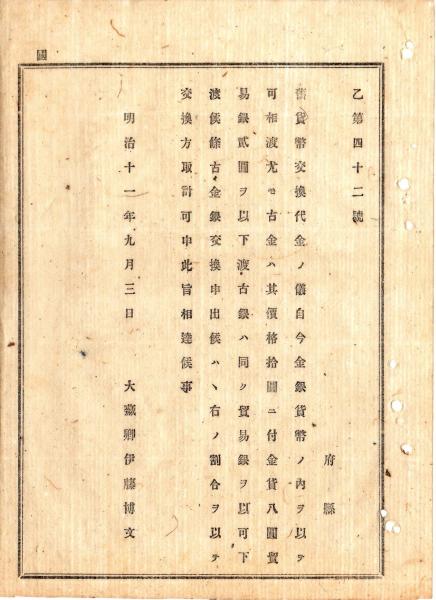 乙第四十二號
府縣
舊貨幣交換代金ノ儀自今金銀貨幣ノ內ヲ以テ
可相渡尤モ古金ハ其價格拾圓ニ付金貨八圓貿
易銀貳圓ヲ以下渡古銀ハ同ク貿易銀ヲ以可下
渡候條古金銀交換申出候ハヽ右ノ割合ヲ以テ
交換方取計可申此旨相達候事
明治十一年九月三日 大藏卿伊藤博文
國